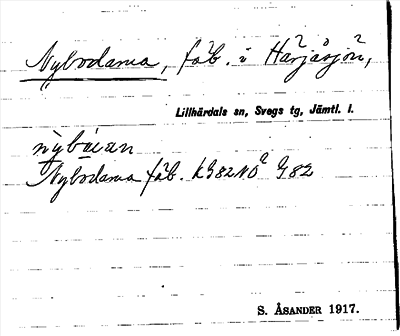 Nybodarna, fäb. i Härjåsjön,
Lillhärdals sn, Svegs tg, Jämtl. l.
Nybodarna fäb. K G82NO G82
S. ÅSANDER 1917.